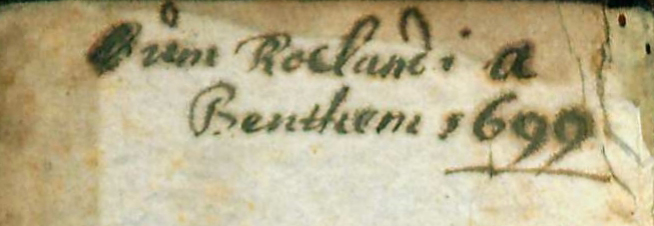 Sum Roelandi a
Benthem 1699